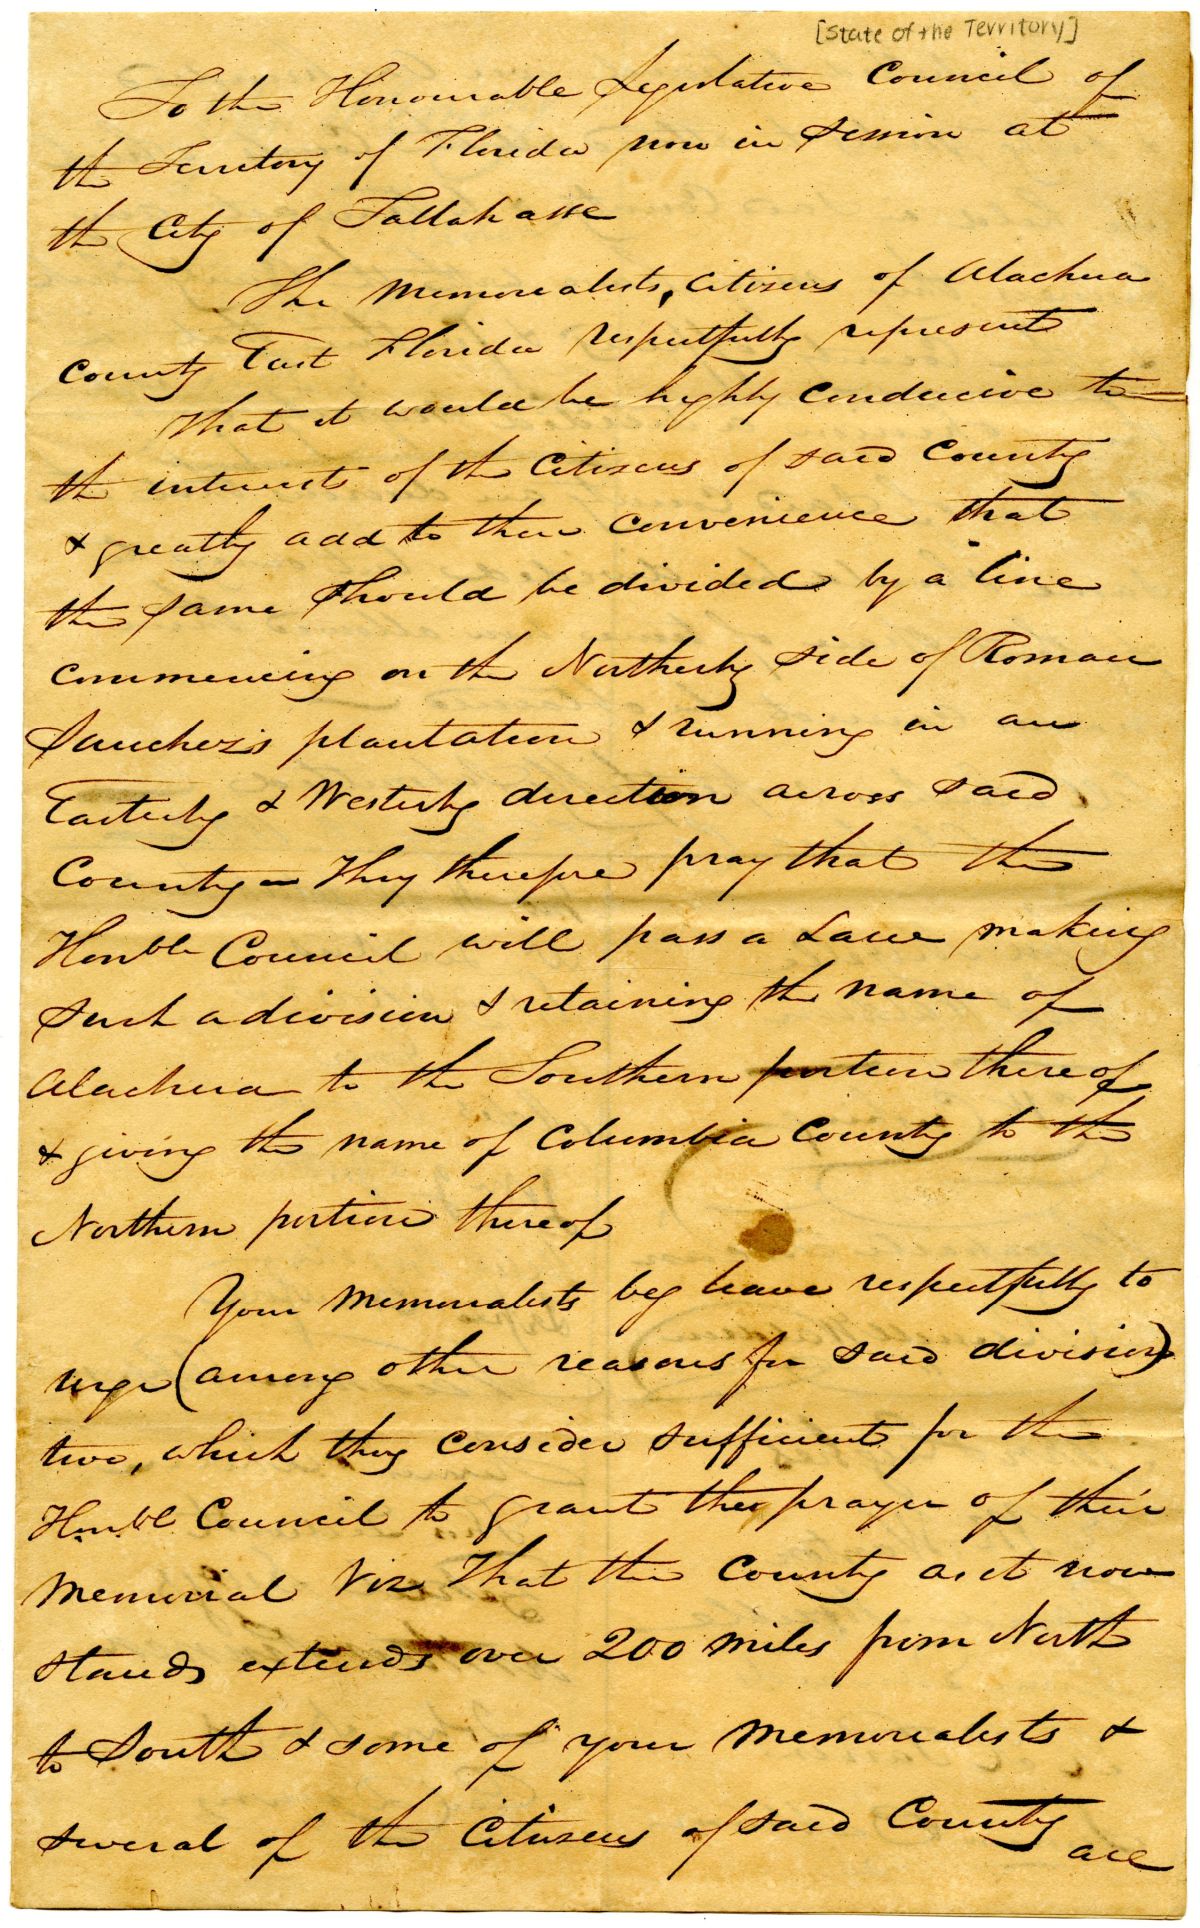 [State of the Territory]
To the Honourable Legislative Council of
the Territory of Florida now in Session at
the City of Tallahasse
The Memorealists, Citizens of Alachua
County East Florida respectfully represent
That it would be highly conducive to
the interest of the Citizens of said County
& greatly add to their convenience that
the same should be divided by a line
commencing on the Northerly side of Roman
Sanchez's plantation & running in an
Easterly & Westerly direction across said
County - They therefore pray that the
Honble Council will pass a Law making
such a division & retaining the name of
Alachua to the Southern portion thereof
& giving the name of Columbia County to the
Northern portion thereof
Your Memorialists beg leave respectfully to
urge (among other reasons for said division)
two, which they consider sufficient for the
Honble Council to grant the prayer of their
Memorial Viz That the County as it now
stands extends over 200 miles from North
to South & some of your Memorialists &
several of the Citizens of said County are